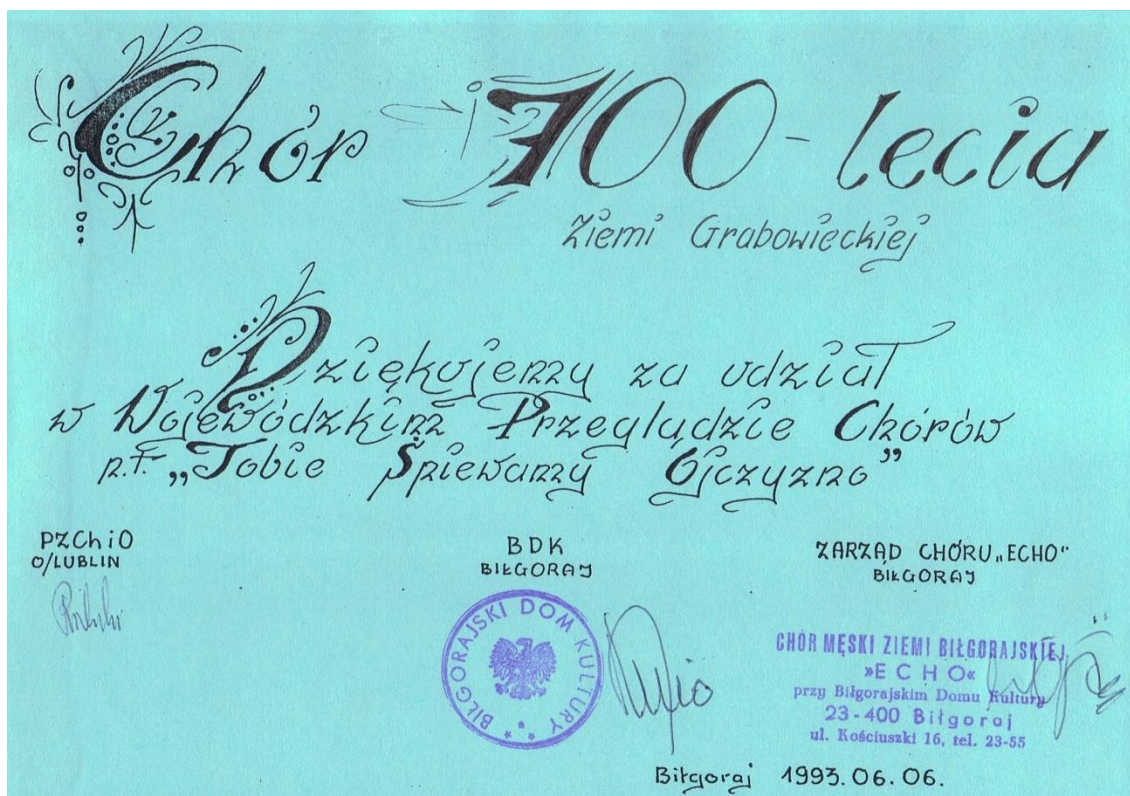 Chór 700-lecia
Ziemi Grabowieckiej
Dziękujemy za udział
w Wojewódzkim Przeglądzie Chórów
p.t. „Tobie Śpiewamy Ojczyzno”
PZChiO
O/LUBLIN
BDK
BIŁGORAJ
ZARZĄD CHÓRU „ECHO”
BIŁGORAJ
BIŁGORAJSKI DOM KULTURY
CHÓR MĘSKI ZIEMI BIŁGORAJSKIEJ
»ECHO«
przy Biłgorajskim Domu Kultury
23-400 Biłgoraj
ul. Kościuszki 16, tel. 23-55
Biłgoraj 1993.06.06.